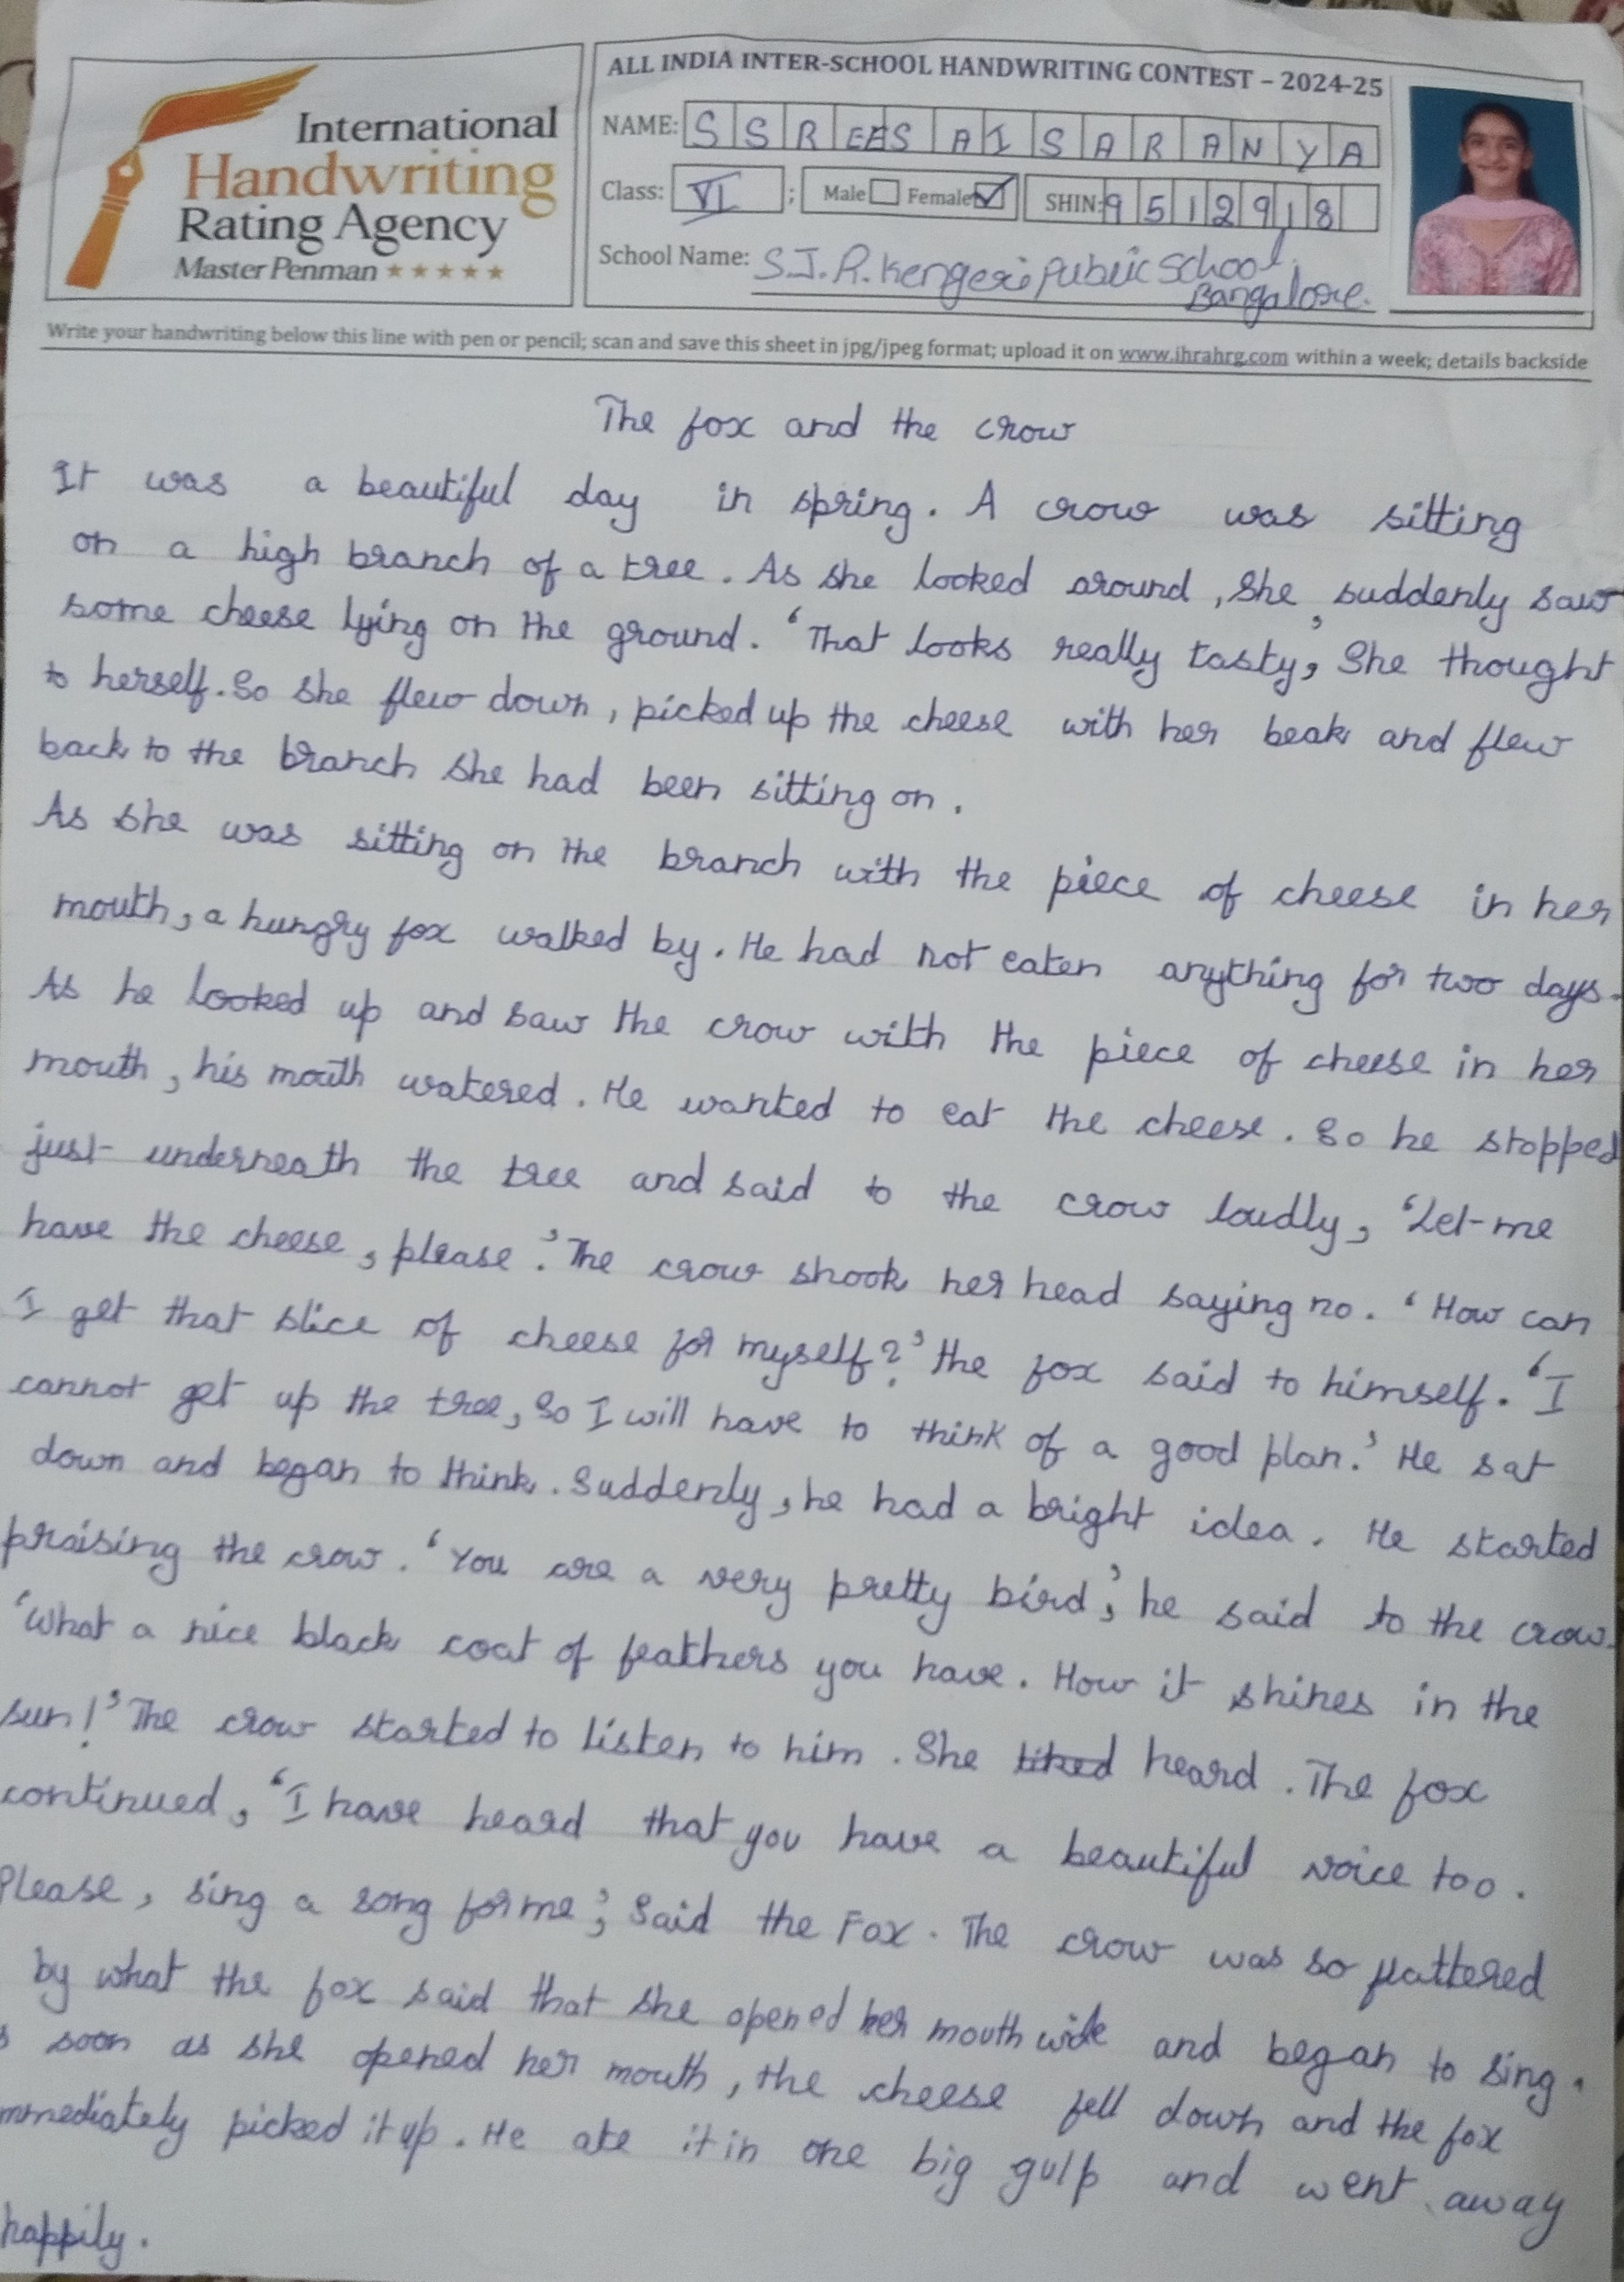 International
Handwriting
Rating Agency
Master Penman ★★★★★
ALL INDIA INTER-SCHOOL HANDWRITING CONTEST – 2024-25
NAME: S S R EES A I S A R A N Y A
Class: VI ; Male Female SHIN: 9 5 1 2 9 1 8
School Name: S.J.R. Kengeri Public School,
Bangalore.
Write your handwriting below this line with pen or pencil; scan and save this sheet in jpg/jpeg format; upload it on www.ihrahrg.com within a week; details backside
The fox and the crow
It was a beautiful day in spring. A crow was sitting
on a high branch of a tree. As she looked around, She suddenly saw
some cheese lying on the ground. ‘That looks really tasty,’ She thought
to herself. So she flew down, picked up the cheese with her beak and flew
back to the branch she had been sitting on.
As she was sitting on the branch with the piece of cheese in her
mouth, a hungry fox walked by. He had not eaten anything for two days.
As he looked up and saw the crow with the piece of cheese in her
mouth, his mouth watered. He wanted to eat the cheese. So he stopped
just underneath the tree and said to the crow loudly, ‘Let me
have the cheese, please.’ The crow shook her head saying no. ‘How can
I get that slice of cheese for myself?’ the fox said to himself. ‘I
cannot get up the tree, So I will have to think of a good plan.’ He sat
down and began to think. Suddenly, he had a bright idea. He started
praising the crow. ‘You are a very pretty bird,’ he said to the crow.
‘What a nice black coat of feathers you have. How it shines in the
sun!’ The crow started to listen to him. She liked heard. The fox
continued, ‘I have heard that you have a beautiful voice too.
Please, sing a song for me,’ Said the Fox. The crow was so flattered
by what the fox said that she opened her mouth wide and began to sing.
s soon as she opened her mouth, the cheese fell down and the fox
mmediately picked it up. He ate it in one big gulp and went away
happily.